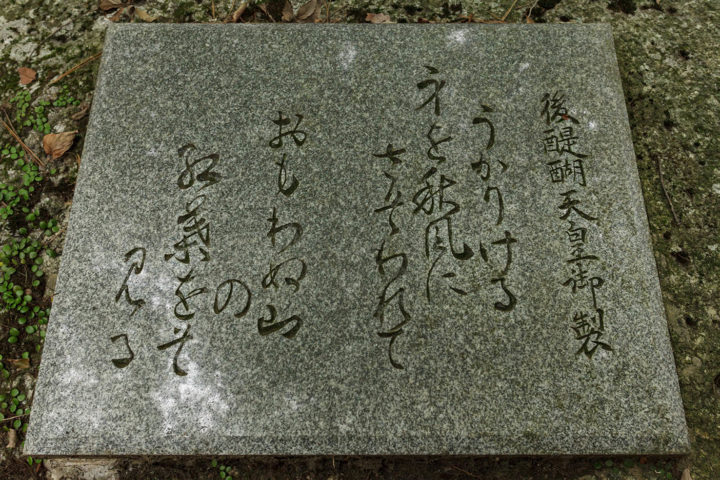 後醍醐天皇御製
うかりける
身を秋風に
さそわれて
おもわぬ山
の
紅葉をそ
見る